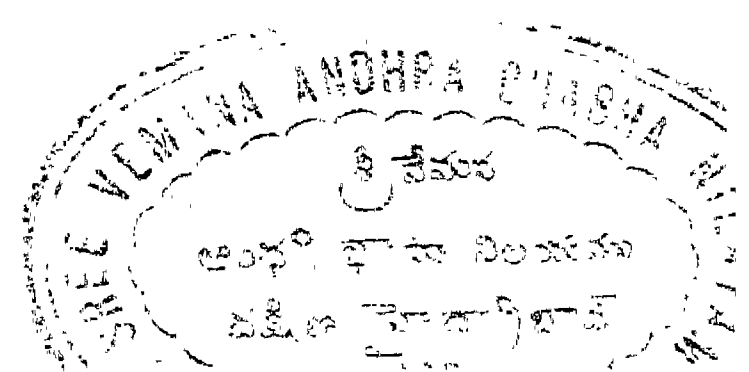 SREE VEMANA ANDHRA BHASHA NILAYAM
శ్రీ వేమన
ఆంధ్ర భాషా నిలయము